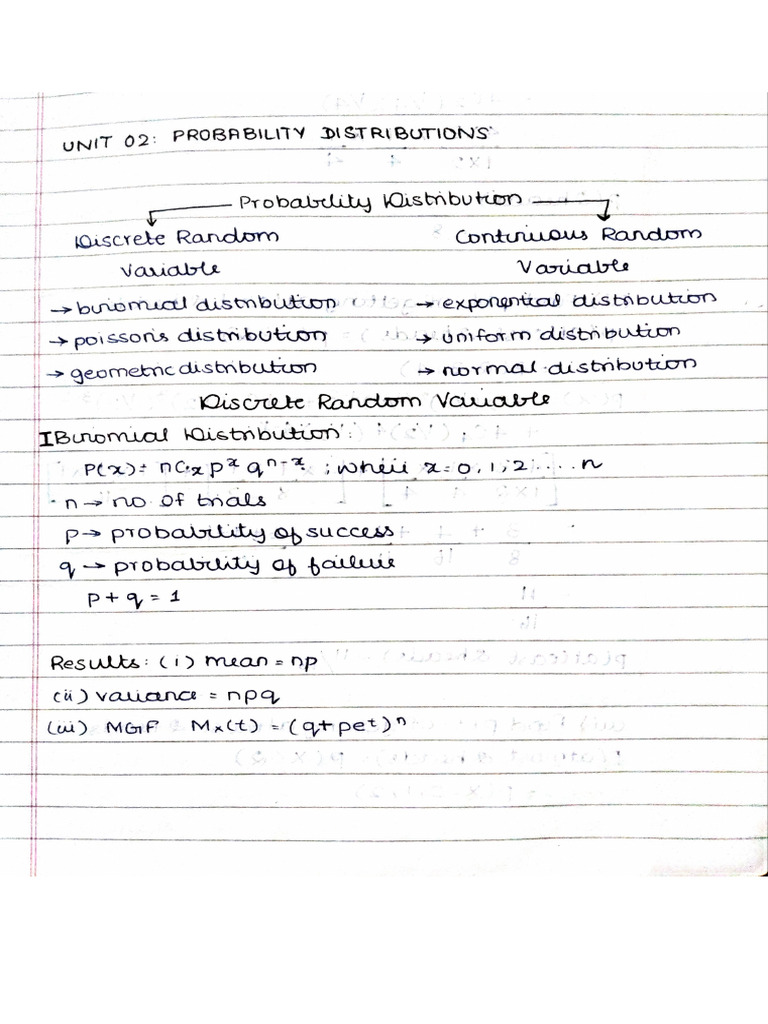 UNIT 02: PROBABILITY DISTRIBUTIONS
Probability Distribution
Discrete Random Continuous Random
Variable Variable
→ binomial distribution → exponential distribution
→ poissons distribution → uniform distribution
→ geometric distribution → normal distribution
Discrete Random Variable
I Binomial Distribution:
P(x) = nCx p^x q^n-x ; where x = 0, 1, 2 .... n
n → no of trials
p → probability of success
q → probability of failure
p + q = 1
Results: (i) mean = np
(ii) variance = npq
(iii) MGF Mx(t) = (q + pe^t)^n